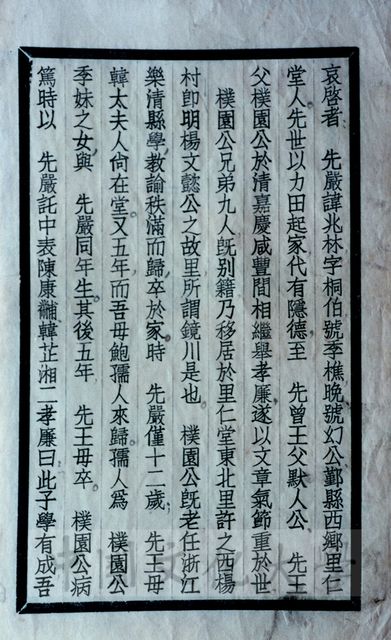 哀啓者　先嚴諱兆林字桐伯號季樵晚號幻公鄞縣西鄉里仁
堂人先世以力田起家代有隱德至　先曾王父默人公　先王
父樸園公於清嘉慶咸豐間相繼舉孝廉遂以文章氣節重於世
樸園公兄弟九人既别籍乃移居於里仁堂東北里許之西楊
村卽明楊文懿公之故里所謂鏡川是也　樸園公既老任浙江
樂清縣學教諭秩滿而歸卒於家時　先嚴僅十二歲　先王母
韓太夫人尙在堂又五年而吾母鮑孺人來歸孺人爲　樸園公
季妹之女與　先嚴同年生其後五年　先王母卒　樸園公病
篤時以　先嚴託中表陳康黼韓芷湘二孝廉曰此子學有成吾